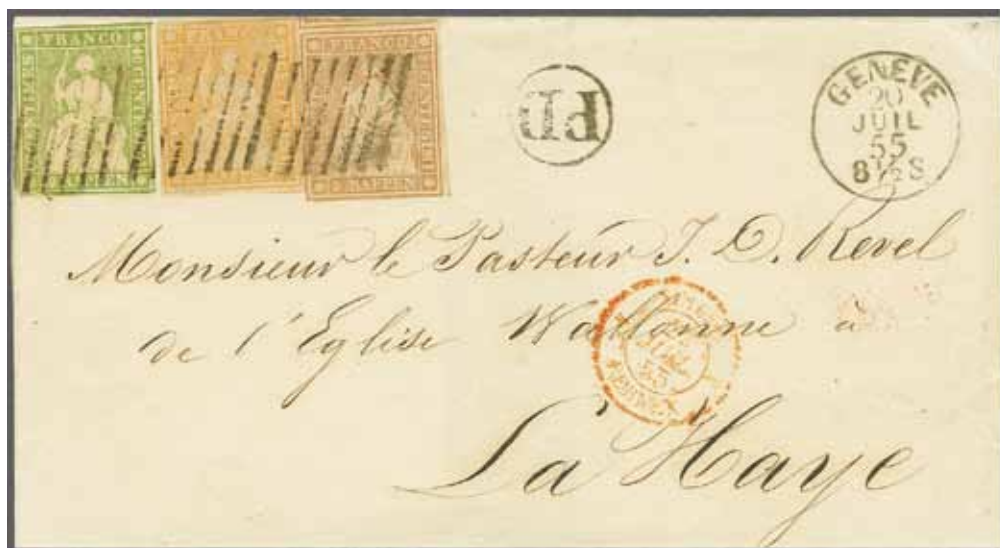 FRANCO
FRANCO
FRANCO
RAPPEN
PD
GENEVE
20
JUIL
55
8½S
Monsieur le Pasteur J. D. Revel
de l'Eglise Wallonne à
La Haye
FERNEX